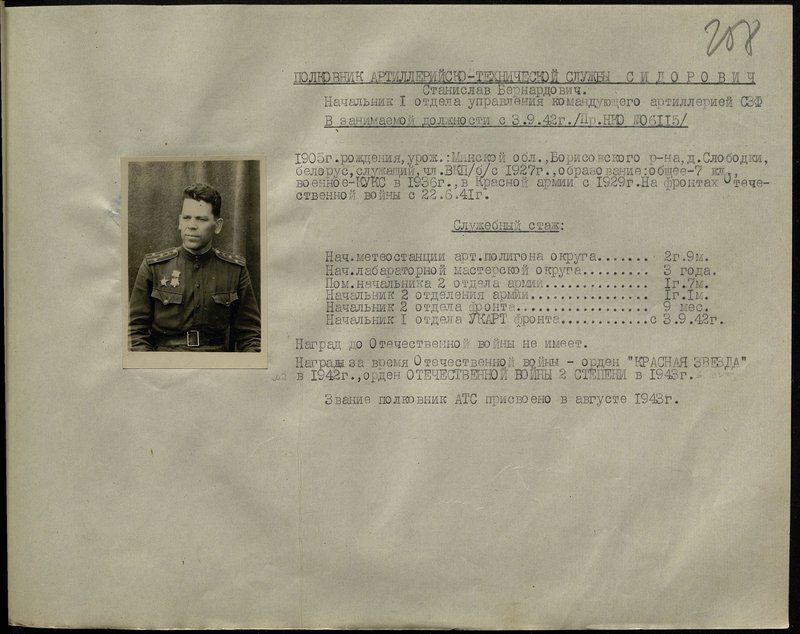 208
ПОЛКОВНИК АРТИЛЛЕРИЙСКО-ТЕХНИЧЕСКОЙ СЛУЖБЫ С И Д О Р О В И Ч
Станислав Бернардович.
Начальник I отдела управления командующего артиллерией СЗФ
В занимаемой должности с 3.9.42г./Пр.НКО №06115/
1905г.рождения,урож.:Минской обл.,Борисовского р-на,д.Слободки,
белорус,служащий,чл.ВКП/б/с 1927г.,образование:общее-7 кл.,
военное-КУКС в 1936г.,в Красной армии с 1929г.На фронтах Отече-
ственной войны с 22.6.41г.
Служебный стаж:
Нач.метеостанции арт.полигона округа....... 2г.9м.
Нач.лабараторной мастерской округа......... 3 года.
Пом.начальника 2 отдела армии.............. 1г.7м.
Начальник 2 отделения армии................ 1г.1м.
Начальник 2 отдела фронта.................. 9 мес.
Начальник I отдела УКАРТ фронта............с 3.9.42г.
Наград до Отечественной войны не имеет.
Награды за время Отечественной войны - орден "КРАСНАЯ ЗВЕЗДА"
в 1942г.,орден ОТЕЧЕСТВЕННОЙ ВОЙНЫ 2 СТЕПЕНИ в 1943г.
Звание полковник АТС присвоено в августе 1943г.